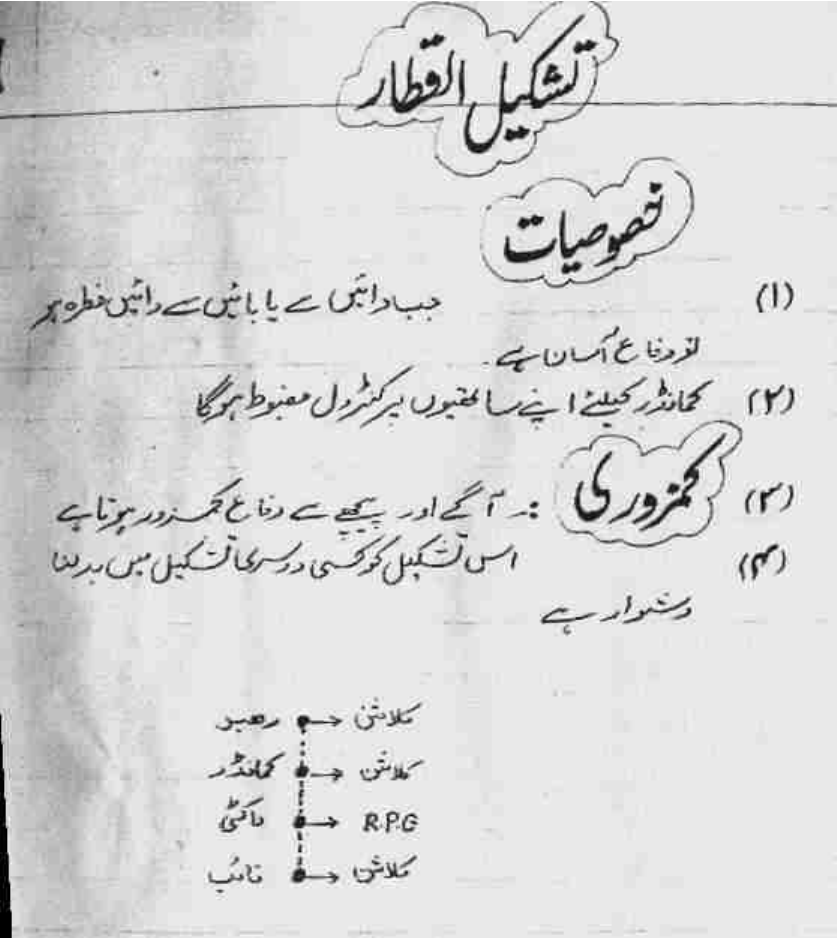 تشکیل القطار
خصوصیات
(۱) جب دائیں سے یا بائیں سے دائیں خطرہ ہو
تو دفاع آسان ہے۔
(۲) کمانڈر کیلئے اپنے ساتھیوں پر کنٹرول مضبوط ہوگا
(۳) کمزوری :۔ آگے اور پیچھے سے دفاع کمزور ہوتا ہے
(۴) اس تشکیل کو کسی دوسری تشکیل میں بدلنا
دشوار ہے
کلاشن رھبر
کلاشن کمانڈر
R.P.G
کلاشن نائب